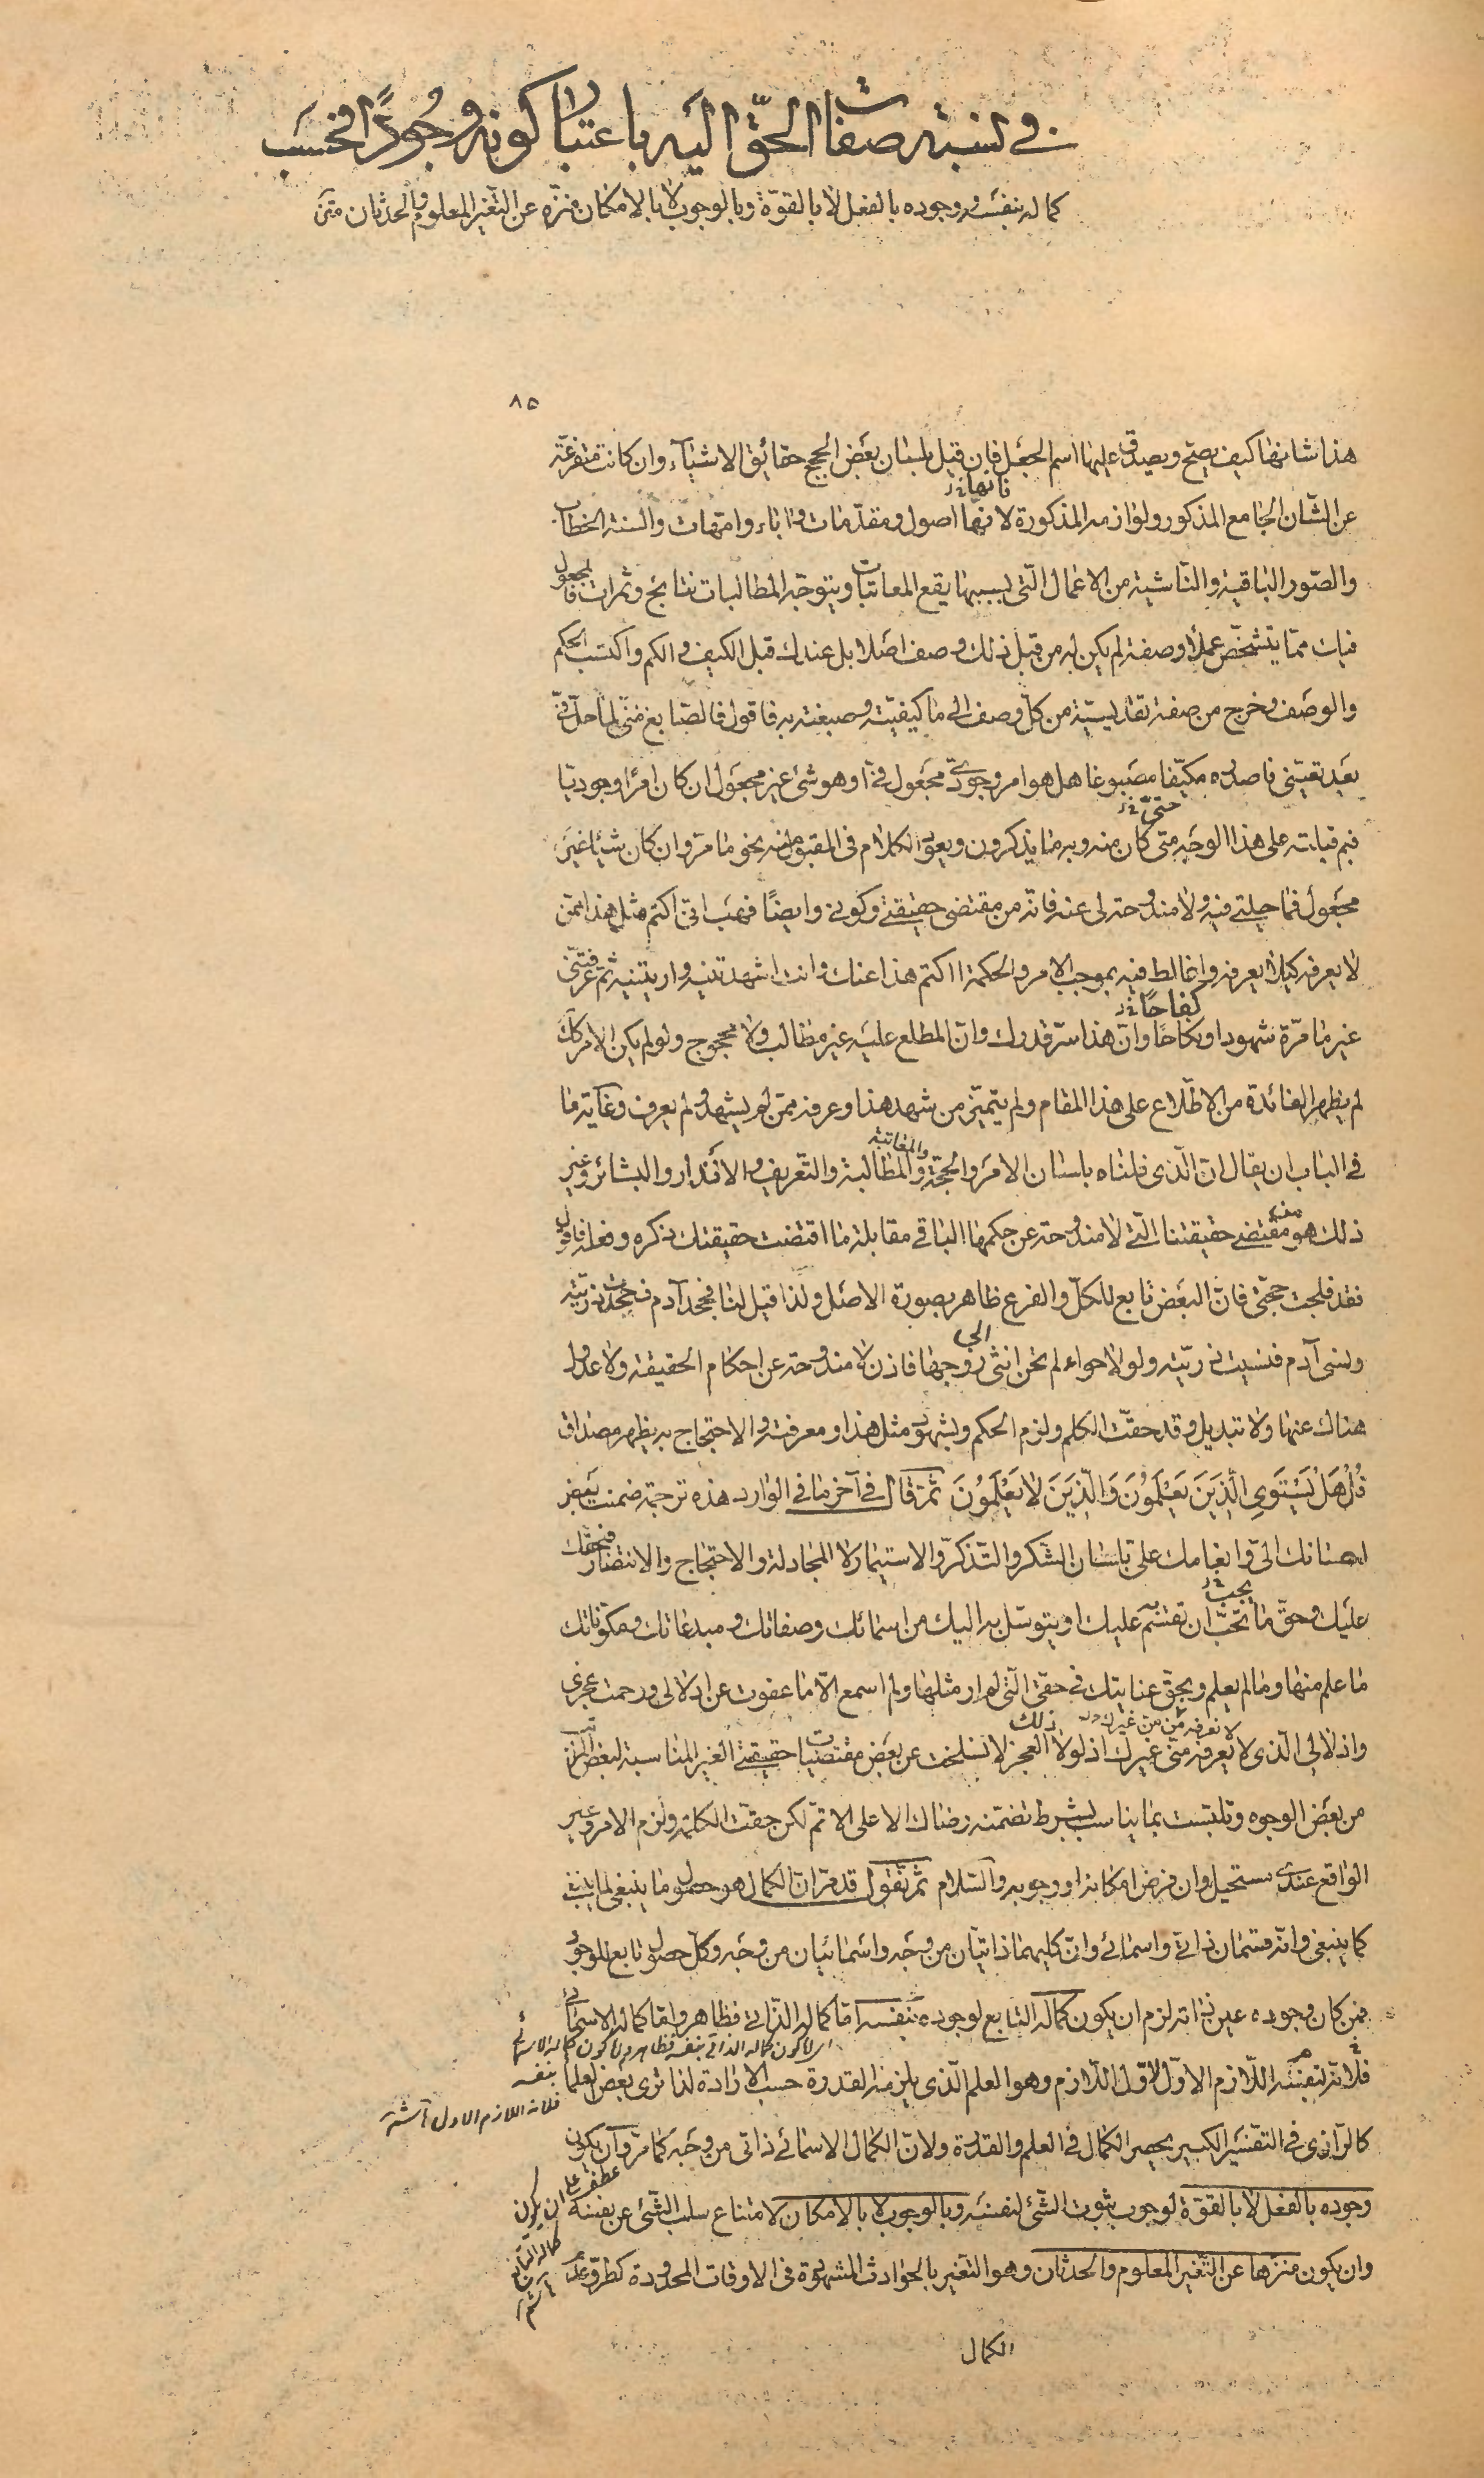 في نسبة صفات الحق اليه باعتبار كونه وجودًا فحسب
كماله بنفسه و وجوده بالفعل لا بالقوّة وبالوجوب لا بالامكان منزّه عن التّغيّر المعلوم والحدثان
٨٥
هذا شانها كيف يصحّ ويصدق عليها اسم الجعل فان قيل بلسان بعض الحجج حقائق الاشياء وان كانت متفرعة
فانها خ‌ر
عن الشّان الجامع المذكور ولوازمه المذكورة لانها اصول ومقدّمات واباء وامّهات والسنة الخطاب
والصّور الباقية والنّاشية من الاعمال الّتي بسببها يقع المعاتبات ويتوجّه المطالبات نتايج وثمرات فالمجعول
فيات ممّا يتشخّص عملا وصفة لم يكن له من قبل ذلك وصف اصلا بل عندك قبل الكيف والكم واكتسب الحكم
والوصف وخرج من صفة تقديسية من كلّ وصف الى ما كيفيّته وصبغته به فاقول فالصّابغ منّى لما حلّ فيّ
بعد تعيّني فاصدره مكيّفا مصبوغا هل هو امر وجوديّ مجعول فيّ او هو شئ غير مجعول ان كان امرا وجوديّا
حتّى خ‌ر
فبم قبلته على هذا الوجه متى كان منه وبه ما يذكرون ويعود الكلام في المقبول به نحو ما مرّ وان كان شيئا غير
مجعول فما حيلتي فيه ولا مندوحة لى عنه فانّه من مقتضى حقيقتي وكوني وايضًا فهب انّى اكتم مثل هذا عمّن
لا يعرفه كيلا يعرفه واغالط فيه بموجب الامر والحكمة ااكتم هذا عنك وانت اشهدتنيه واريتنيه ثمّ عرفتنى
كفاحًا خ‌ر
غير ما مرّة شهودا وكفاحًا وانّ هذا سرّ قدرك وانّ المطلع عليه غير مطالب ولا محجوج ولو لم يكن الامر كك
لم يظهر الفائدة من الاطّلاع على هذا المقام ولم يتميّز من شهد هذا وعرفه ممّن لم يشهد ولم يعرف وغاية ما
والمعاتبة
في الباب ان يقال انّ الّذى قلناه بلسان الامر والحجّة والمطالبة والتّعريف والانذار والبشائر وغير
ذلك هو من مقتضى حقيقتنا الّتى لا مندوحة عن حكمها الباقي مقابلة ما اقتضت حقيقتك ذكره وفعله فاقول
فقد فلجت حجّتى فانّ البعض تابع للكلّ والفرع ظاهر بصورة الاصل ولذا قيل لنا فجحد آدم فجحدت ذريّته
الى
ونسى آدم فنسيت ذريّته ولولا حواء لم تخن انثى زوجها فاذن لا مندوحة عن احكام الحقيقة ولا عدول
هناك عنها ولا تبديل وقد حقّت الكلم ولزم الحكم وبشهود مثل هذا ومعرفته والاحتجاج به يظهر مصداق
قُلْ هَلْ يَسْتَوِي الَّذِينَ يَعْلَمُونَ وَالَّذِينَ لا يَعْلَمُونَ ثمّ قال في آخر ما في الوارد هذه ترجمة ضمنت بعض
احسانك الىّ وانعامك علىّ بلسان الشّكر والتّذكّر والاستيمار لا المجادلة والاحتجاج والانتصار فبحقّك
يجب خ‌ر
عليك وحقّ ما تحبّ ان تقسم عليك او يتوسّل به اليك من اسمائك وصفاتك ومبدعاتك ومكوّناتك
ما علم منها وما لم يعلم وبحقّ عنايتك في حقّى الّتى لم ار مثلها ولم اسمع الّا ما عفوت عن ادلالى ورحمت عجزى
لا نعرفه ممّن غيرك ذلك
واذلالي الّذى لا يعرفه منّى غيرك اذ لولا العجز لانسلخت عن بعض مقتضيات حقيقتي الغير المناسبة لبعض المراتب
من بعض الوجوه وتلبّست بما يناسب بشرط تضمّنه رضاك الاعلى الاتمّ لكن حقّت الكلمة ولزم الامر وغير
الواقع عندى مستحيل وان فرض امكانه او وجوبه والسّلام ثمّ نقول قد مرّ ان الكمال هو حصول ما ينبغي لما ينبغي
كما ينبغى وانّه قسمان ذاتي واسمائي وانّ كليهما ذاتيّان من وجه واسمائيان من وجه وكلّ حصول تابع للوجود
فمن كان وجوده عين ذاته لزم ان يكون كماله التابع لوجوده بنفسه امّا كماله الذّاتي فظاهر وامّا كماله الاسمائي
اى لا كون كماله الذاتي بنفسه فظاهر واما كون كماله الاسمائي بنفسه
فلانه اللازم الاول آشتـ
فلانّه لنفسه اللّازم الاوّل او لاوّل اللّازم وهو العلم الّذى يلزمه القدرة حسب الارادة لذا نرى بعض العلماء
كالرّازى في التفسير الكبير يحصر الكمال في العلم والقدرة ولانّ الكمال الاسمائي ذاتي من وجه كما مرّ وان يكون
عطف على ان يكون كماله التابع آشتـ
وجوده بالفعل لا بالقوّة لوجوب ثبوت الشّئ لنفسه وبالوجوب لا بالامكان لامتناع سلب الشّئ عن نفسه
وان يكون منزها عن التّغيّر المعلوم والحدثان وهو التغير بالحوادث المشهودة في الاوقات المحدودة كطروّ
الكمال